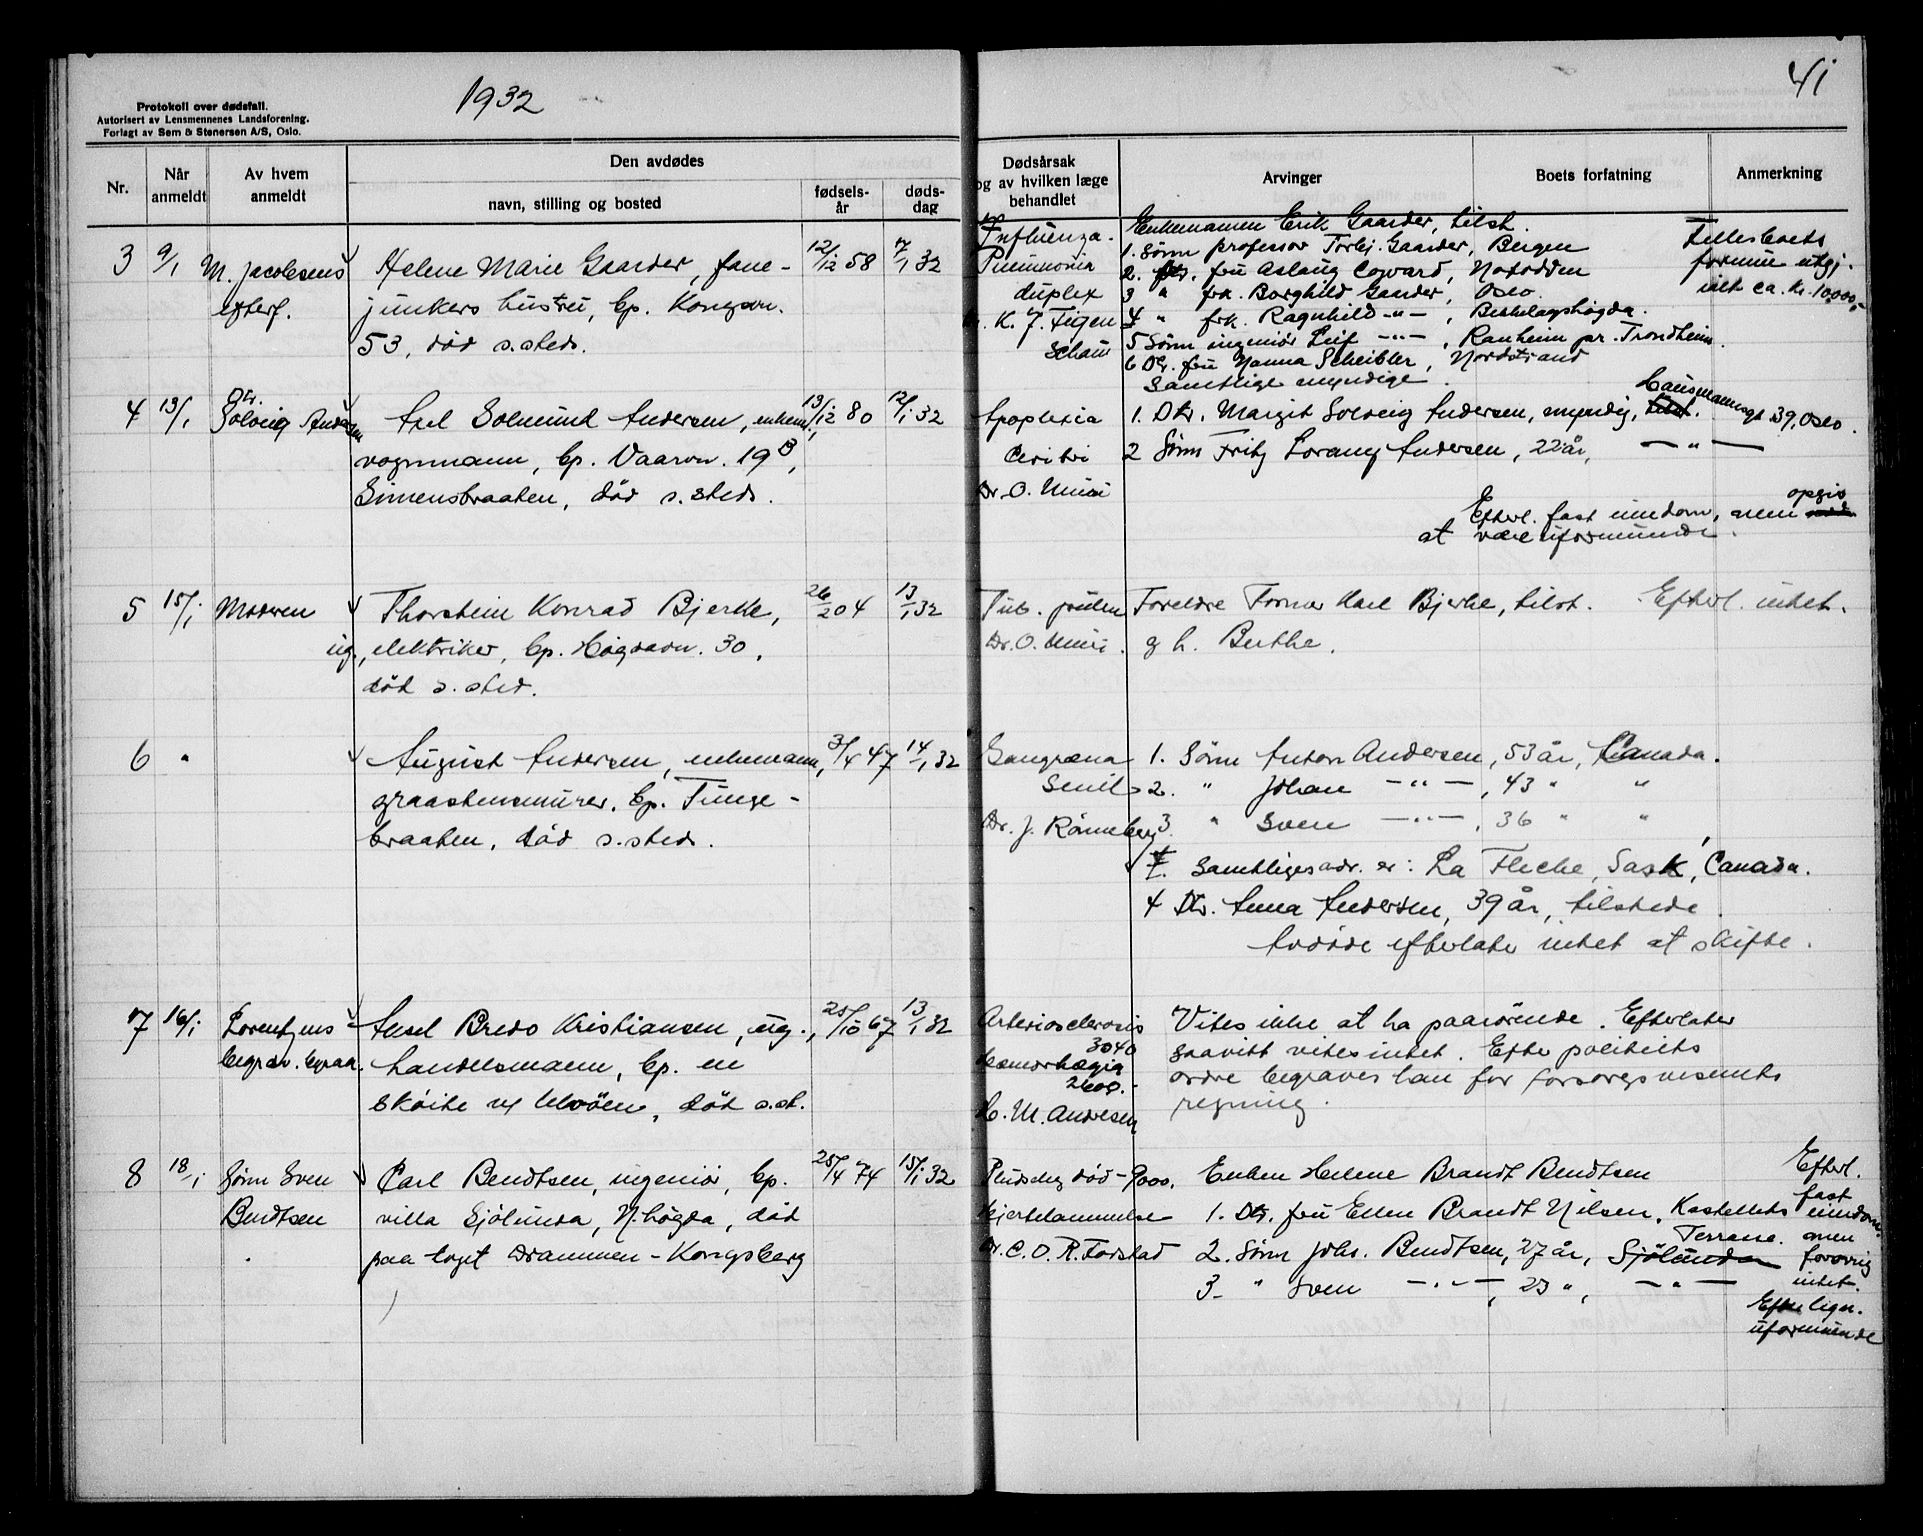 1932
41
Protokoll over dødsfall.
Autorisert av Lensmennenes Landsforening.
Forlagt av Sem & Stenersen A/S, Oslo.
Nr.
Når anmeldt
Av hvem anmeldt
Den avdødes
navn, stilling og bosted
fødsels-år
døds-dag
Dødsårsak og av hvilken læge behandlet
Arvinger
Boets forfatning
Anmerkning
3 9/1 M. Jacobsens Helene Marie Gaarder, fane- 12/12 58 7/1 32
efterf. junkers hustru, bp. Kongsv.
53, død s. steds.
Influenza.
Pneumonia
duplex
K. F. Feigen
Schou
Enkemannen Erik Gaarder, tilst.
1. Sønn professor Torbj. Gaarder, Bergen
2. Dtr. fru Aslaug Coward, Notodden
3 " frk. Borghild Gaarder, Oslo.
4 " frk. Ragnhild -"-, Bekkelagshøgda.
5 Sønn ingeniør Leif -"-, Ranheim pr. Trondheim.
6 Dtr. fru Nanna Scheibler, Nordstrand
Samtlige myndige.
Fellesboets
formue utgj.
inkt ca. kr. 10000,-
4 13/1 Dtr. Solveig Andersen Axel Solmund Andersen, enkem., 13/12 80 12/1 32
vognmann, bp. Vaarvn. 19 B,
Simensbraaten, død s. steds.
Apoplexia
Cerebri
Dr. O. Muni
1. Dtr. Margit Solveig Andersen, myndig, tilst. Hausmannsgt 39, Oslo.
2 Sønn Fritz Lorang Andersen, 22 år, -"-
Efterl. fast eiendom, men opgis
at være uformuende.
5 15/1 Moren Thorstein Konrad Bjerke, 26/2 04 13/1 32
ug., elektriker, bp. Høgdavn. 30,
død s. sted.
Tub. pulm
Dr. O. Muni.
Foreldre Former Karl Bjerke, tilst. Efterl. intet.
g h. Berthe.
6 " August Andersen, enkemann, 3/4 47 14/1 32
graastensmurer, bp. Tunge-
braaten, død s. steds.
Gangræna
Senilis
Dr. J. Rönneberg
1. Sønn Anton Andersen, 53 år, Canada.
2. " Johan -"-, 43 " "
3. " Sven -"-, 36 " "
Samtliges adr. er: La Fleche, Sask, Canada.
4 Dtr. Anna Andersen, 39 år, tilstede.
Avdøde efterlater intet at skifte.
7 16/1 Lorentzens Aksel Bredo Kristiansen, ug., 25/10 67 13/1 32
begrav. byraa. handelsmann, bp. en
skøite v/ Ulvöen, död s.st.
Arteriosclerosis
3040
Hæmorhagia
2600.-
H. M. Andresen
Vites ikke at ha paarörende. Efterlater
saavitt vites intet. Efter politiets
ordre begraves han for forsorgsvesenets
regning.
8 18/1 Sønn Sven Carl Bendtsen, ingeniør, bp. 25/4 74 15/1 32
Bendtsen villa Sjölunda, N.høgda, död
paa toget Drammen - Kongsberg
Pludselig død - 9000.
Hjertelammelse
Dr. C. O. R. Forstad
Enken Helene Brandt Bendtsen
1. Dtr. fru Ellen Brandt Nilsen, Kastellets
Terrasse.
2. Sønn Johs. Bendtsen, 27 år, Sjölunda
3- " Sven -"-, 23 ", -"-
Efterl.
fast
eiendom
men
forøvrig
intet.
Efter lign.
uformuende